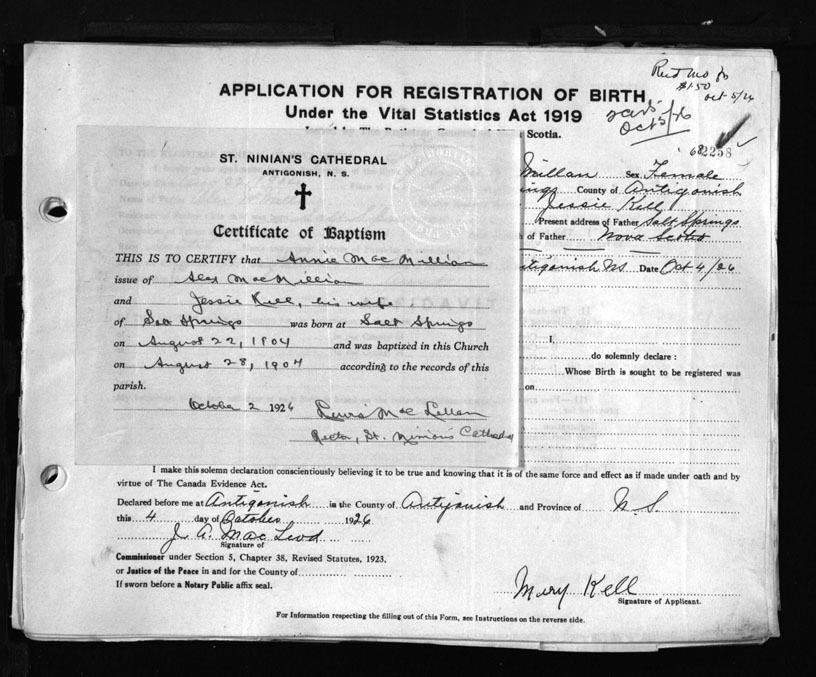 APPLICATION FOR REGISTRATION OF BIRTH
Under the Vital Statistics Act 1919
$1.50
Oct 5/26
Oct 5/26
Scotia.
2258
ST. NINIAN'S CATHEDRAL
ANTIGONISH, N. S.
Certificate of Baptism
THIS IS TO CERTIFY that Annie MacMillian
issue of Alex MacMillian
and Jessie Kell, his wife
of Salt Springs was born at Salt Springs
on August 22, 1904 and was baptized in this Church
on August 28, 1904 according to the records of this
parish.
October 2 1926 Lewis MacLellan
Rector, St. Ninian's Cathedral
Millan Sex Female
ings County of Antigonish
Jessie Kell
Present address of Father Salt Springs
h of Father Nova Scotia
tigonish NS Date Oct 4/26
I,
do solemnly declare :
Whose Birth is sought to be registered was
on
I make this solemn declaration conscientiously believing it to be true and knowing that it is of the same force and effect as if made under oath and by
virtue of The Canada Evidence Act.
Declared before me at Antigonish in the County of Antigonish and Province of N S.
this 4 day of October 1926
J. A. MacLeod
Signature of
Commissioner under Section 5, Chapter 38, Revised Statutes, 1923.
or Justice of the Peace in and for the County of
If sworn before a Notary Public affix seal.
Mary Kell
Signature of Applicant.
For Information respecting the filling out of this Form, see Instructions on the reverse side.